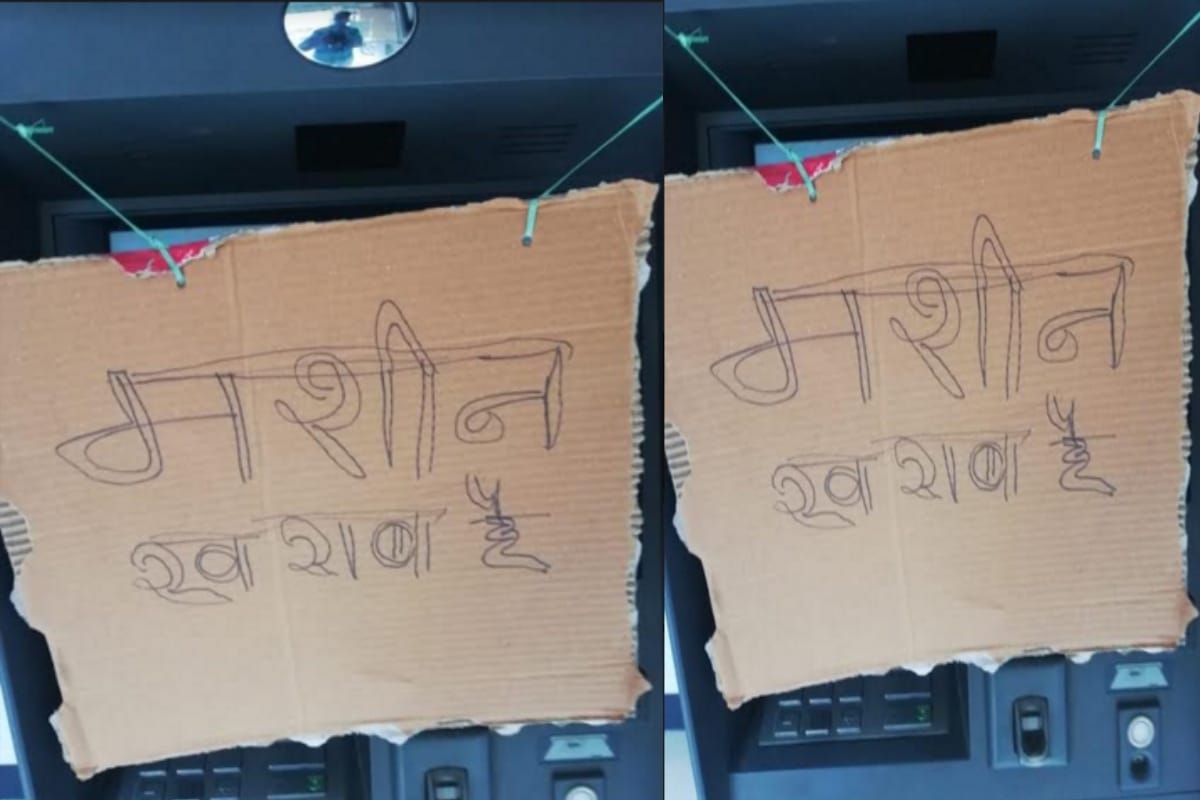 मशीन
खराब है
मशीन
खराब है